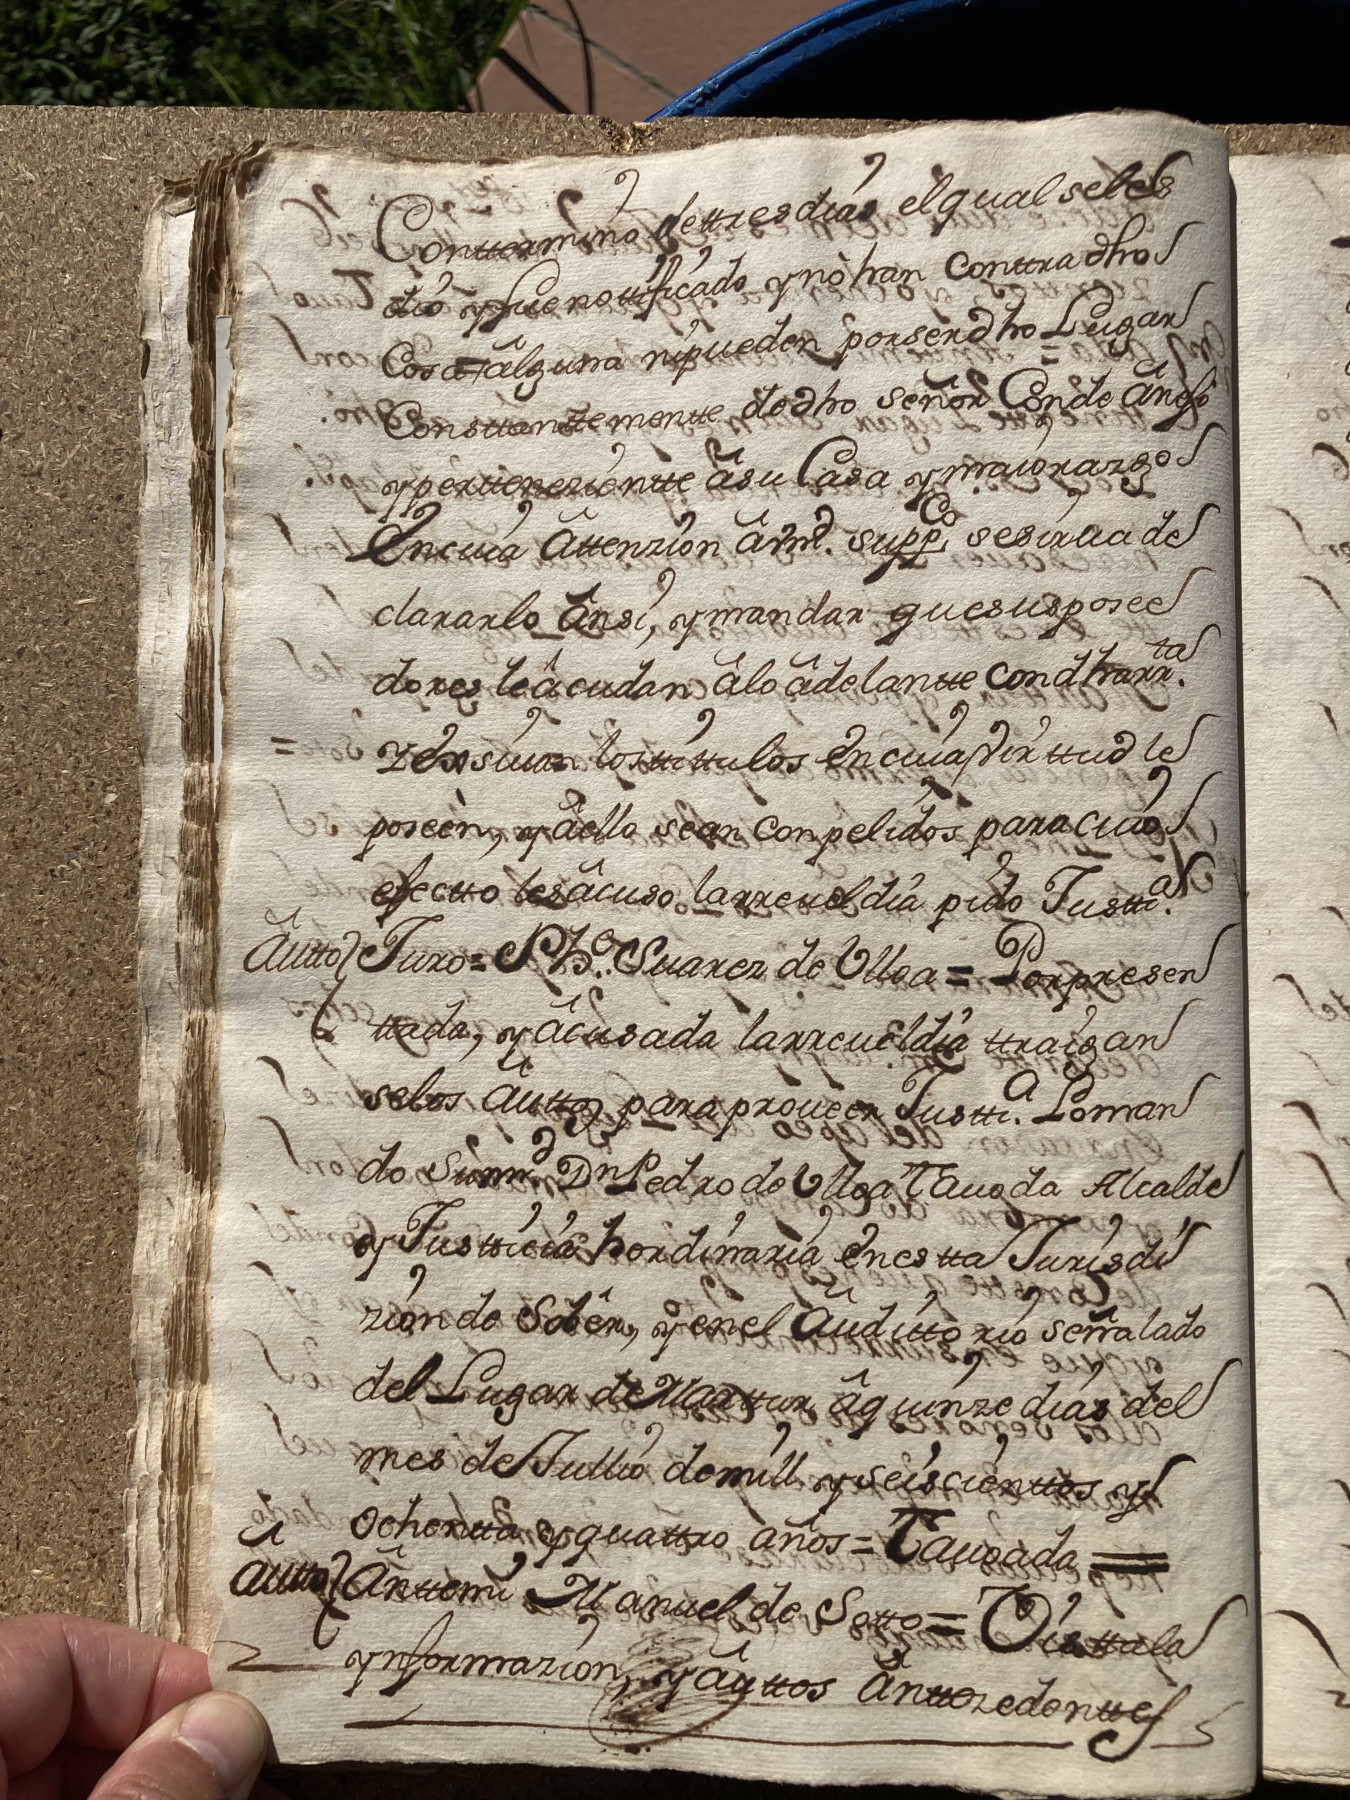 Conttermino dettresdias elqual seles
dio yfuenottificado ynohan conttradho
Cosa alguna nipueden porserdho Lugar
Consttanttementte dedho señor Conde ânsi
yperttenezientte âsu Casa ymaiorazgo
Encuia âttenzion âvmd. suppco sesirua de
clararlo ânsi, ymandar quesusposee
dores leâcudan âlo âdelantte condharrta.
= yexsiuan losttittulos encuia Virttud le
poseen, yâello sean conpelidos paracuio
efectto lesâcuso larreueldia pido Justtia.
âutto Juro = Phe. Suarez de Ulloa = Porpresen
ttada, yâcusada larreueldia ttraigan
selos âuttos para proueer Justtia. Loman
do sumrd Dn Pedro de Ulloa Tauoada Alcalde
y Justticia hordinaria enestta Jurisdi
zion de Sober, yenel âudittorio señalado
del Lugar de Marttur âquinze dias del
mes de Jullio demill yseiscienttos y
ochentta yquattro años = Tauoada =
âutto ânttemi Manuel de Sotto = Visttala
ynformazion, yâuttos ânttezedenttes